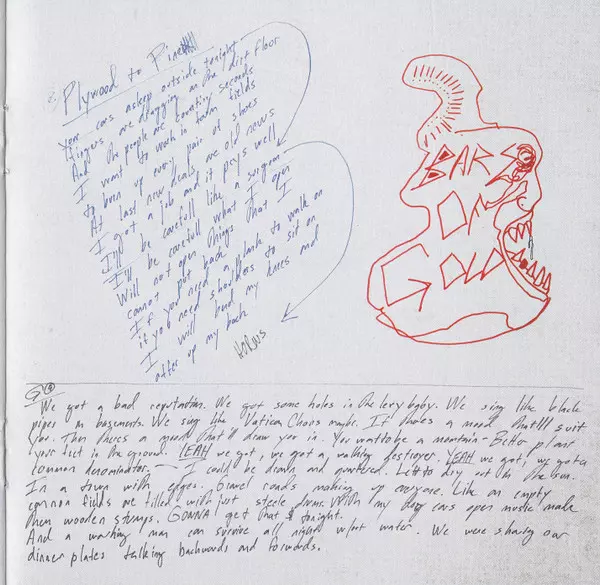 Plywood to Pine
Your cars asleep outside tonight
Fingers are dragging on the dirt floor
And the people are counting seconds
I want to work in barn fields
to burn up every pair of shoes
At last new deals are old news
I got a job and it pays well
I'll be carefull like a surgeon
I'll be carefull what I open
Will not open things that I
cannot put back
If you need a back to walk on
if you need shoulders to sit on
I will bend my knees and
offer up my back
HORNS
BARS
OF
GOLD
We got a bad reputation. We got some holes in the levy baby. We sing like black
pipes in basements. We sing like Vatican Choirs maybe. If there's a mood that'll suit
you. Then there's a mood that'll draw you in. You want to be a mountain - Better plant
your feet in the ground. YEAH we got, we got a walking destroyer. YEAH we got, we got a
common denominator. — I could be drawn and quartered. Left to dry out in the sun.
In a town with edges. Gravel roads making up everyone. Like an empty
cannon fields are filled with just steele drums. With my ears open music made
them wooden stumps. GONNA get that $ tonight.
And a working man can survive all night w/out water. We were sharing our
dinner plates talking backwards and forwards.